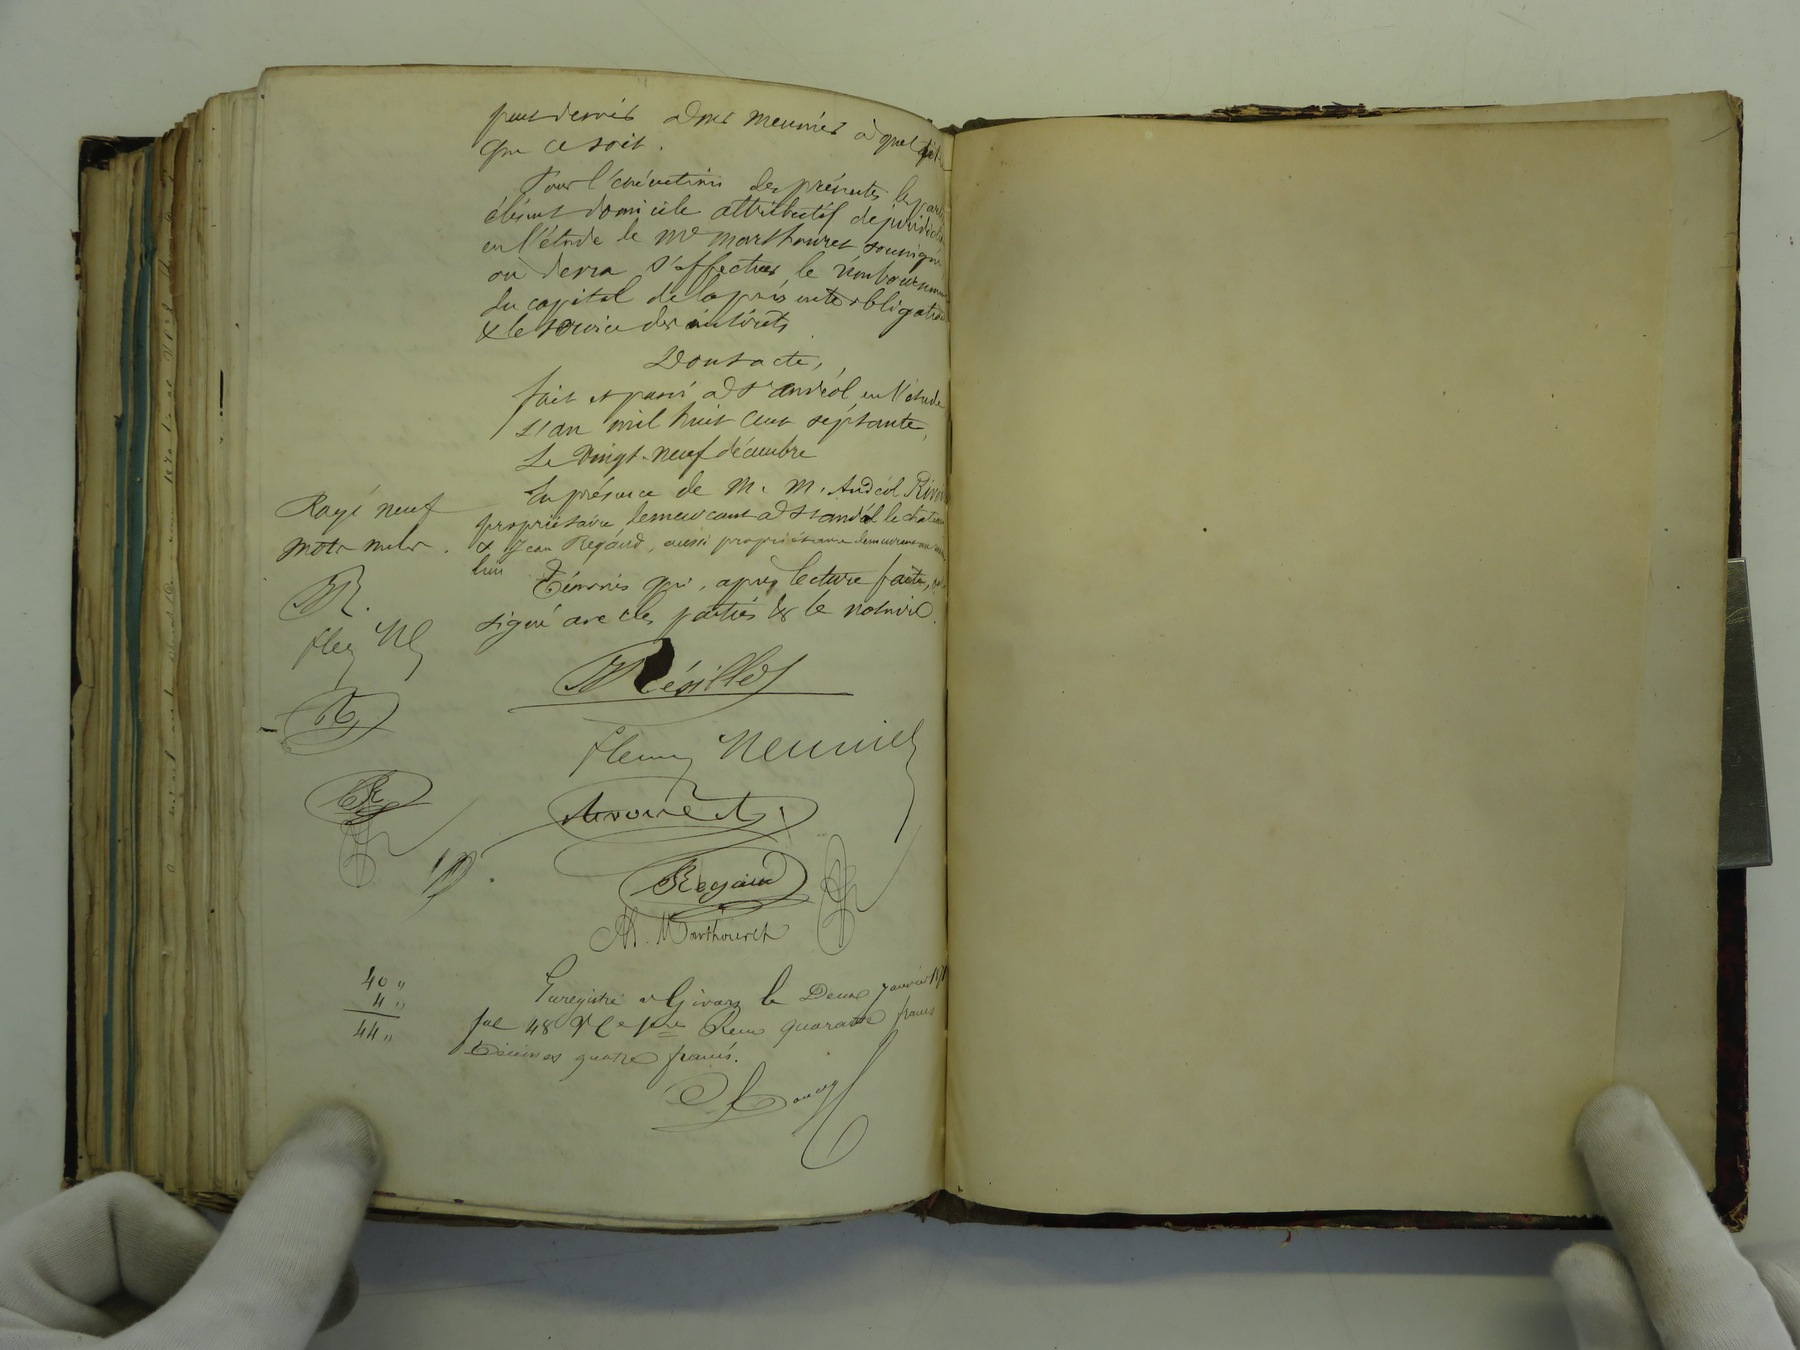 peut devoir à Dme Meunier à quel titre
que ce soit.
Pour l'exécution des présentes les parties
élisent domicile attributif de juridiction
en l'étude de Me Marthouret soussigné
où devra s'effectuer le remboursement
du capital de la présente obligation
& le service des intérêts
Dont acte,
fait et passé à St Andéol, en l'étude
L'an mil huit cent septante,
Le vingt-neuf décembre
En présence de M. M. Andéol
propriétaire, demeurant à St Andéol le château
& Jean Regaud, aussi propriétaire demeurant au même
lieu
Témoins qui, après lecture faite, ont
signé avec les parties & le notaire.
Rayé neuf
mots nuls.
Fleury Meunier
Regaud
M. Marthouret
40 "
4 "
44 "
Enregistré à Givors le Deux janvier 1871
fol 48 Vo Ce 1ere Reçu quarante francs
Décimes quatre francs.